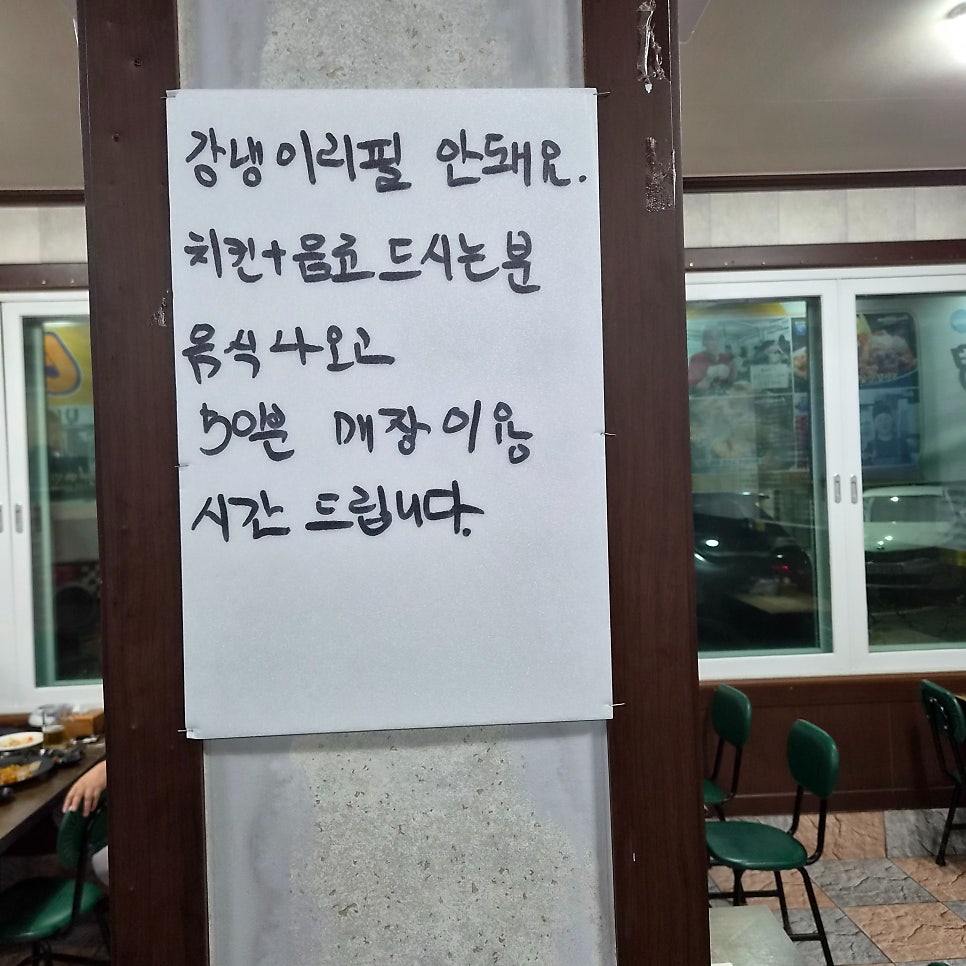 강냉이리필 안돼요.
치킨+음료 드시는분
음식 나오고
50분 매장이용
시간 드립니다.